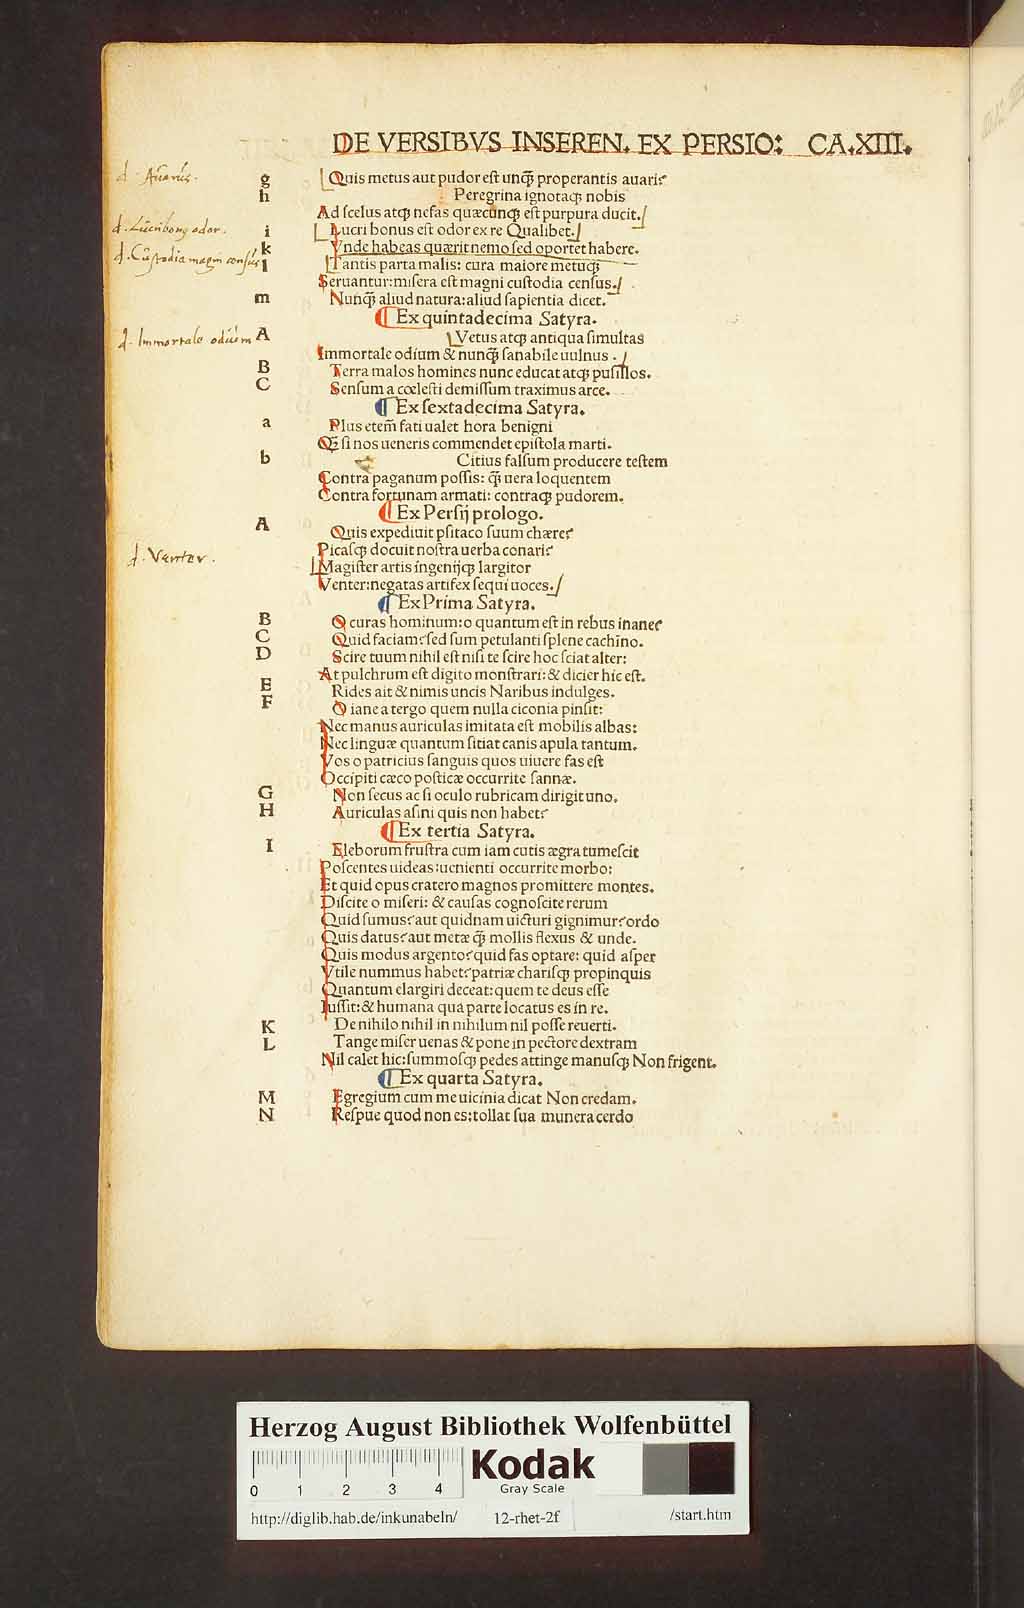 DE VERSIBVS INSEREN. EX PERSIO: CA.XIII.
d. Auarus.
g Quis metus aut pudor est unq̃ properantis auari?
h Peregrina ignotaqꝫ nobis
Ad scelus atqꝫ nefas quæcunqꝫ est purpura ducit.
d. Lucri bonus odor.
i Lucri bonus est odor ex re Qualibet.
k Vnde habeas quærit nemo sed oportet habere.
d. Custodia magni census
l Tantis parta malis: cura maiore metuqꝫ
Seruantur: misera est magni custodia census.
m Nunq̃ aliud natura: aliud sapientia dicet.
¶ Ex quintadecima Satyra.
d. Immortale odium
A Vetus atqꝫ antiqua simultas
Immortale odium & nunq̃ sanabile uulnus.
B Terra malos homines nunc educat atqꝫ pusillos.
C Sensum a cœlesti demissum traximus arce.
¶ Ex sextadecima Satyra.
a Plus etem̃ fati ualet hora benigni
Q̃ si nos ueneris commendet epistola marti.
b Citius falsum producere testem
Contra paganum possis: q̃ uera loquentem
Contra fortunam armati: contraqꝫ pudorem.
¶ Ex Persij prologo.
A Quis expediuit psitaco suum chære?
Picasqꝫ docuit nostra uerba conari?
d. Venter.
Magister artis ingenijqꝫ largitor
Venter: negatas artifex sequi uoces.
¶ Ex Prima Satyra.
B O curas hominum: o quantum est in rebus inane?
C Quid faciam? sed sum petulanti splene cachino.
D Scire tuum nihil est nisi te scire hoc sciat alter:
At pulchrum est digito monstrari: & dicier hic est.
E Rides ait & nimis uncis Naribus indulges.
F O iane a tergo quem nulla ciconia pinsit:
Nec manus auriculas imitata est mobilis albas:
Nec linguæ quantum sitiat canis apula tantum.
Vos o patricius sanguis quos uiuere fas est
Occipiti cæco posticæ occurrite sannæ.
G Non secus ac si oculo rubricam dirigit uno.
H Auriculas asini quis non habet?
¶ Ex tertia Satyra.
I Eleborum frustra cum iam cutis ægra tumescit
Poscentes uideas: uenienti occurrite morbo:
Et quid opus cratero magnos promittere montes.
Discite o miseri: & causas cognoscite rerum
Quid sumus? aut quidnam uicturi gignimur? ordo
Quis datus? aut metæ q̃ mollis flexus & unde.
Quis modus argento? quid fas optare: quid asper
Vtile nummus habet? patriæ charisqꝫ propinquis
Quantum elargiri deceat: quem te deus esse
Iussit: & humana qua parte locatus es in re.
K De nihilo nihil in nihilum nil posse reuerti.
L Tange miser uenas & pone in pectore dextram
Nil calet hic: summosqꝫ pedes attinge manusqꝫ Non frigent.
¶ Ex quarta Satyra.
M Egregium cum me uicinia dicat Non credam.
N Respue quod non es: tollat sua munera cerdo
Herzog August Bibliothek Wolfenbüttel
0 1 2 3 4
Kodak
Gray Scale
http://diglib.hab.de/inkunabeln/ 12-rhet-2f /start.htm